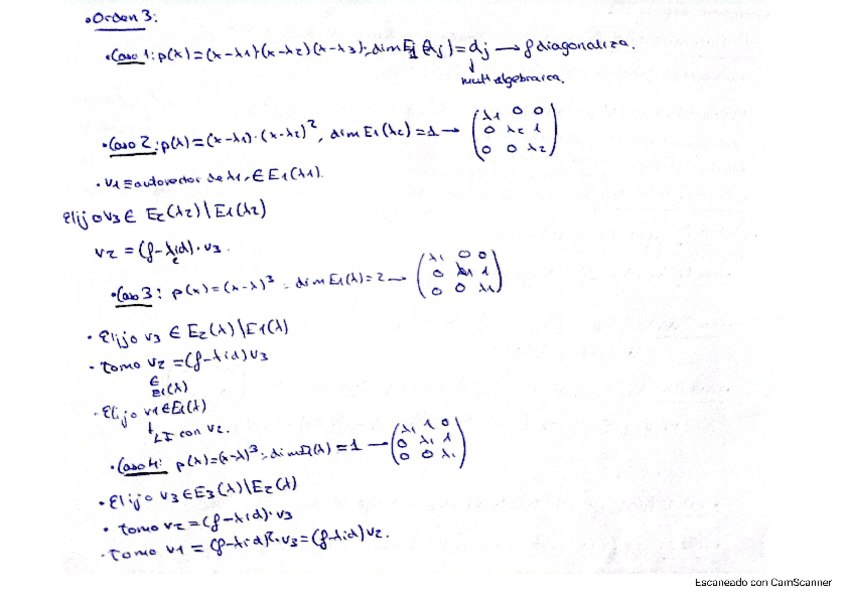 • Orden 3:
• Caso 1: p(x)=(x-λ1)(x-λ2)(x-λ3), dim E1(λj)=dj → f diagonaliza.
↓
mult algebraica.
• Caso 2: p(λ)=(x-λ1)·(x-λ2)², dim E1(λ2)=1 → (λ1 0 0
0 λ2 1
0 0 λ2)
• v1 ≡ autovector de λ1, ∈ E1(λ1).
Elijo v3 ∈ E2(λ2)\E1(λ2)
v2 = (f-λ2id)·v3.
• Caso 3: p(x)=(x-λ)³, dim E1(λ)=2 → (λ1 0 0
0 λ1 1
0 0 λ1)
• Elijo v3 ∈ E2(λ)\E1(λ)
• tomo v2 = (f-λid)v3
∈
E1(λ)
• Elijo v1 ∈ E1(λ)
↓
LI con v2.
• Caso 4: p(λ)=(x-λ)³, dim E1(λ)=1 → (λ1 1 0
0 λ1 1
0 0 λ1)
• Elijo v3 ∈ E3(λ)\E2(λ)
• tomo v2 = (f-λid)·v3
• Tomo v1 = (f-λid)²·v3 = (f-λid)v2.
Escaneado con CamScanner